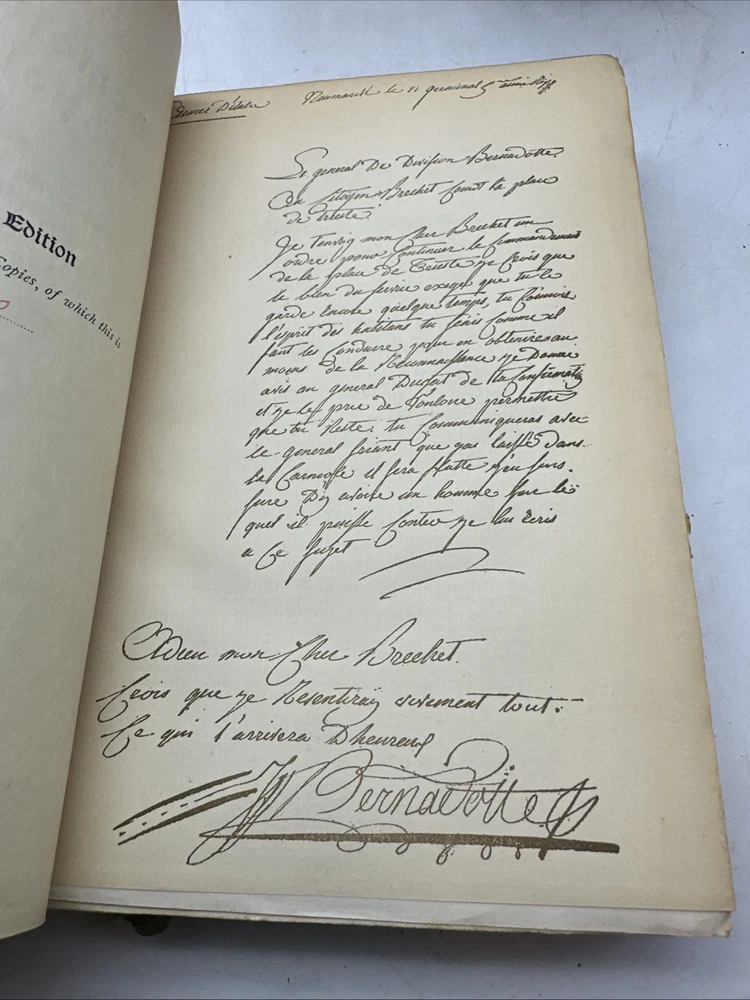 Edition
Copies, of which this is
Neumarck le 21 germinal 5
Le general De Division Bernadotte.
Au Citoyen Brechet Comt la place
de trieste
Je t'envoy mon Cher Brechet un
ordre pour Continuer le Commandement
de la place de Trieste je Crois que
le bien du service exige que tu le
garde Encore quelque temps, tu Connois
l'esprit des habitans tu sçais Comme il
faut les Conduire pour en obtenir au
moins de la Reconnaissance je Donne
avis au general Dugat de ta Confirmation
et je le prie de Vouloir permettre
que tu Reste. tu Communiqueras avec
le general friant que jai laissé dans
la Carniole il sera flatté
Dy avoir un homme sur le
quel il puisse Conter je lui Ecris
a Ce sujet
Adieu mon Cher Brechet.
Crois que je Resentiray vivement tout
Ce qui t'arrivera Dheureux
Bernadotte